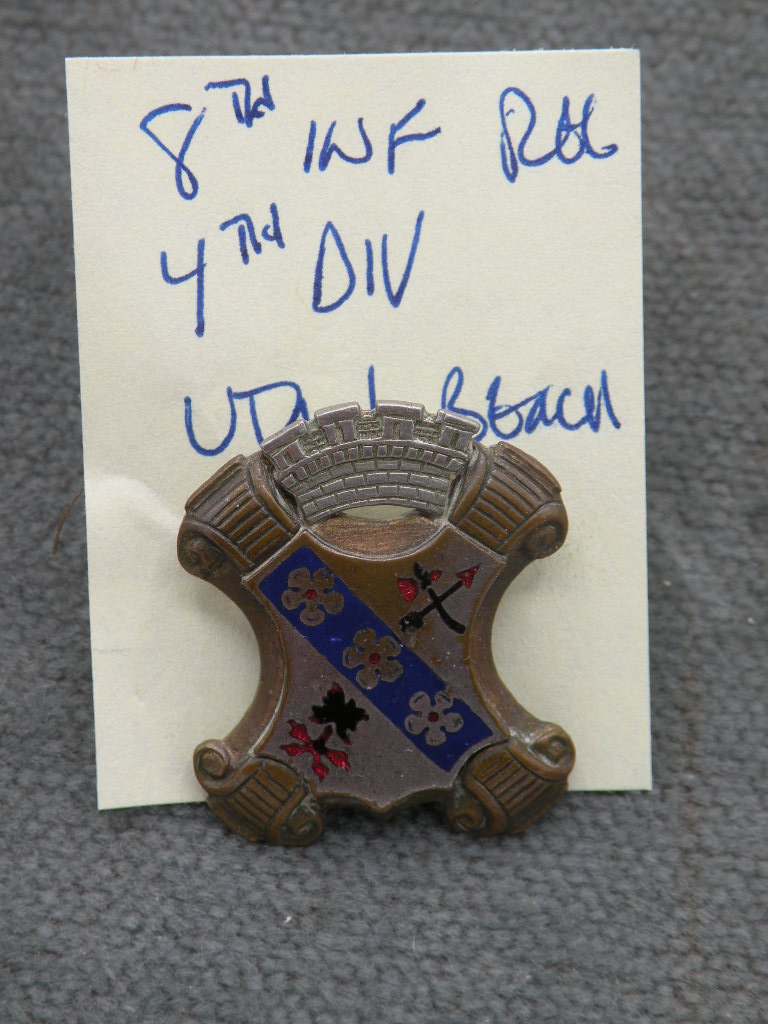 8TH INF REG
4TH DIV
UTAH BEACH